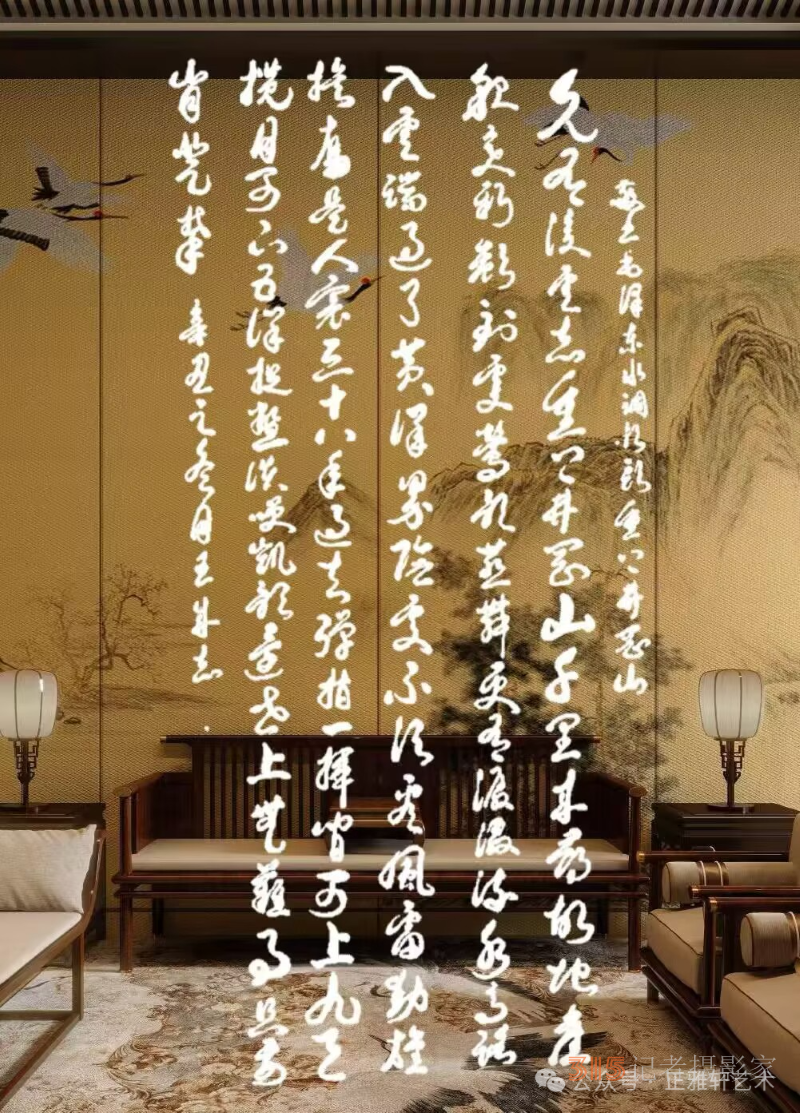 毛泽东水调歌头重上井冈山
久有凌云志重上井冈山千里来寻故地旧
貌变新颜到处莺歌燕舞更有潺潺流水高路
入云端过了黄洋界险处不须看风雷动旌
旗奋是人寰三十八年过去弹指一挥间可上九天
揽月可下五洋捉鳖谈笑凯歌还世上无难事只要
肯登攀 辛丑之冬月王
记者摄影家
公众号·雅轩艺术